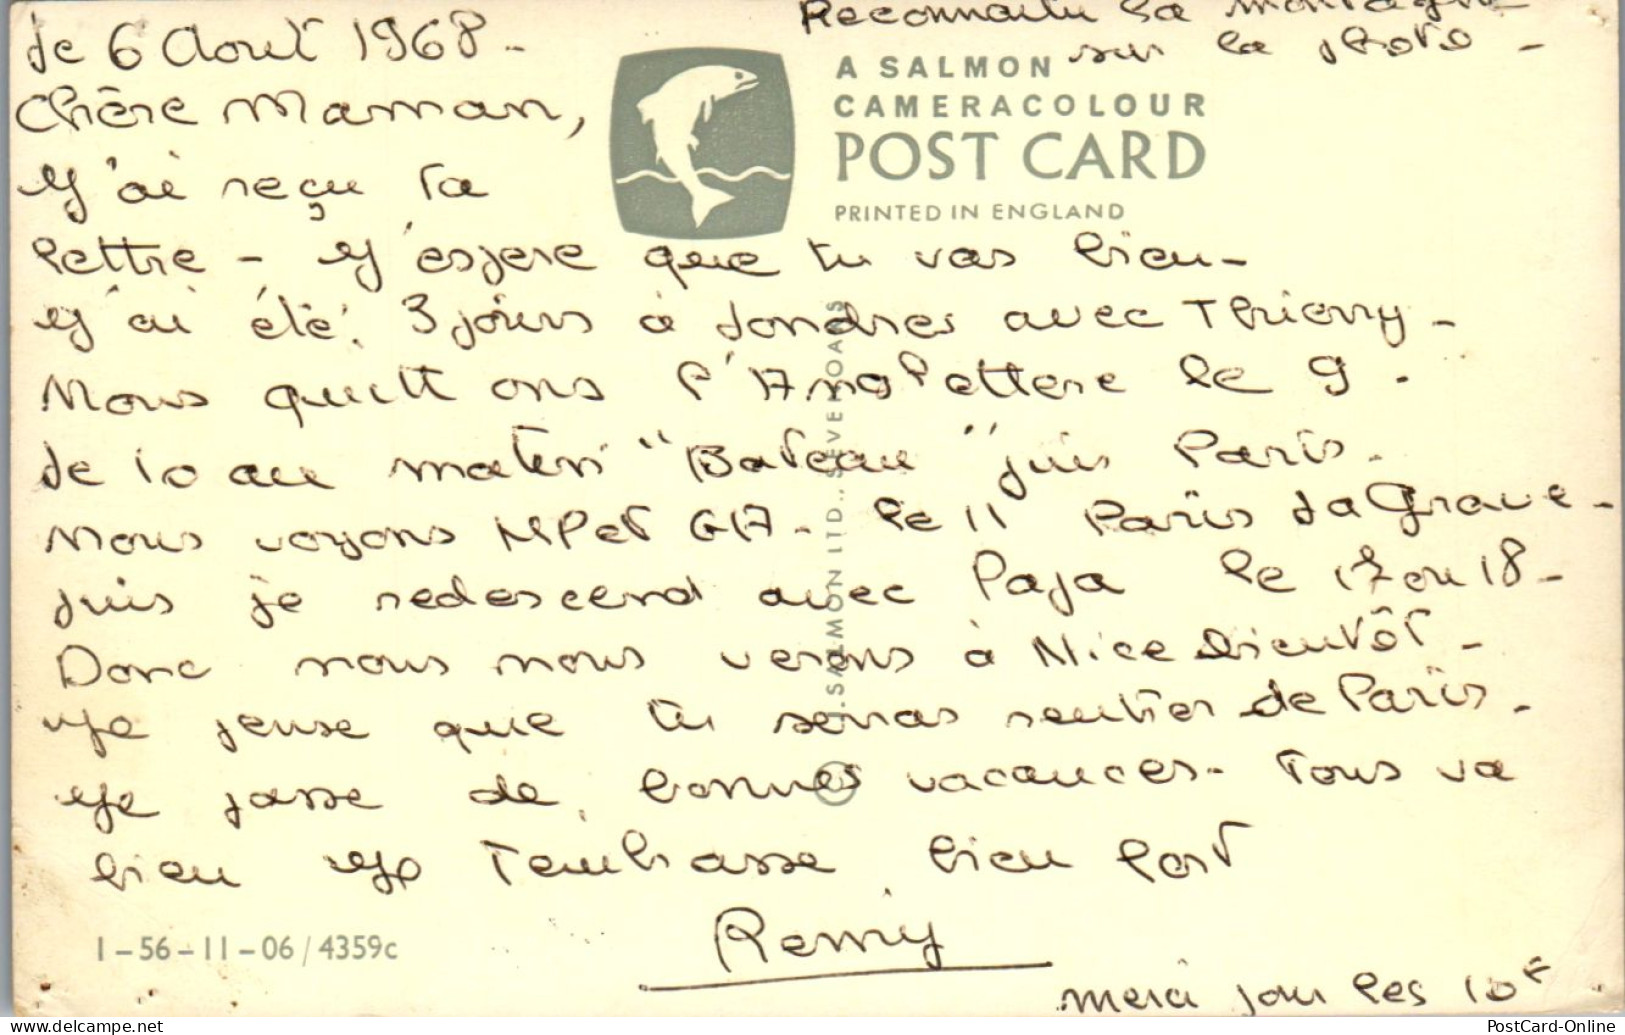 Reconnaitre la montagne
sur la photo -
Le 6 Aout 1968 -
A SALMON
CAMERACOLOUR
POST CARD
PRINTED IN ENGLAND
Chère Maman,
J'ai reçu ta
lettre - J'espere que tu vas bien -
J'ai été 3 jours à Londres avec Thierry -
Nous quittons l'Angletterre le 9.
Le 10 au matin "Bateau" puis Paris.
Nous voyons MP et GA - le 11 Paris La Grave -
puis je redescend avec Papa le 17 ou 18 -
Donc nous nous verons à Nice bientôt -
Je pense que tu seras rentrer de Paris.
Je passe de bonnes vacances - Tous va
bien Je T'embrasse bien fort
Remy
merci pour les 10F
J. SALMON LTD., SEVENOAKS
©
1-56-11-06/4359c
PostCard-Online